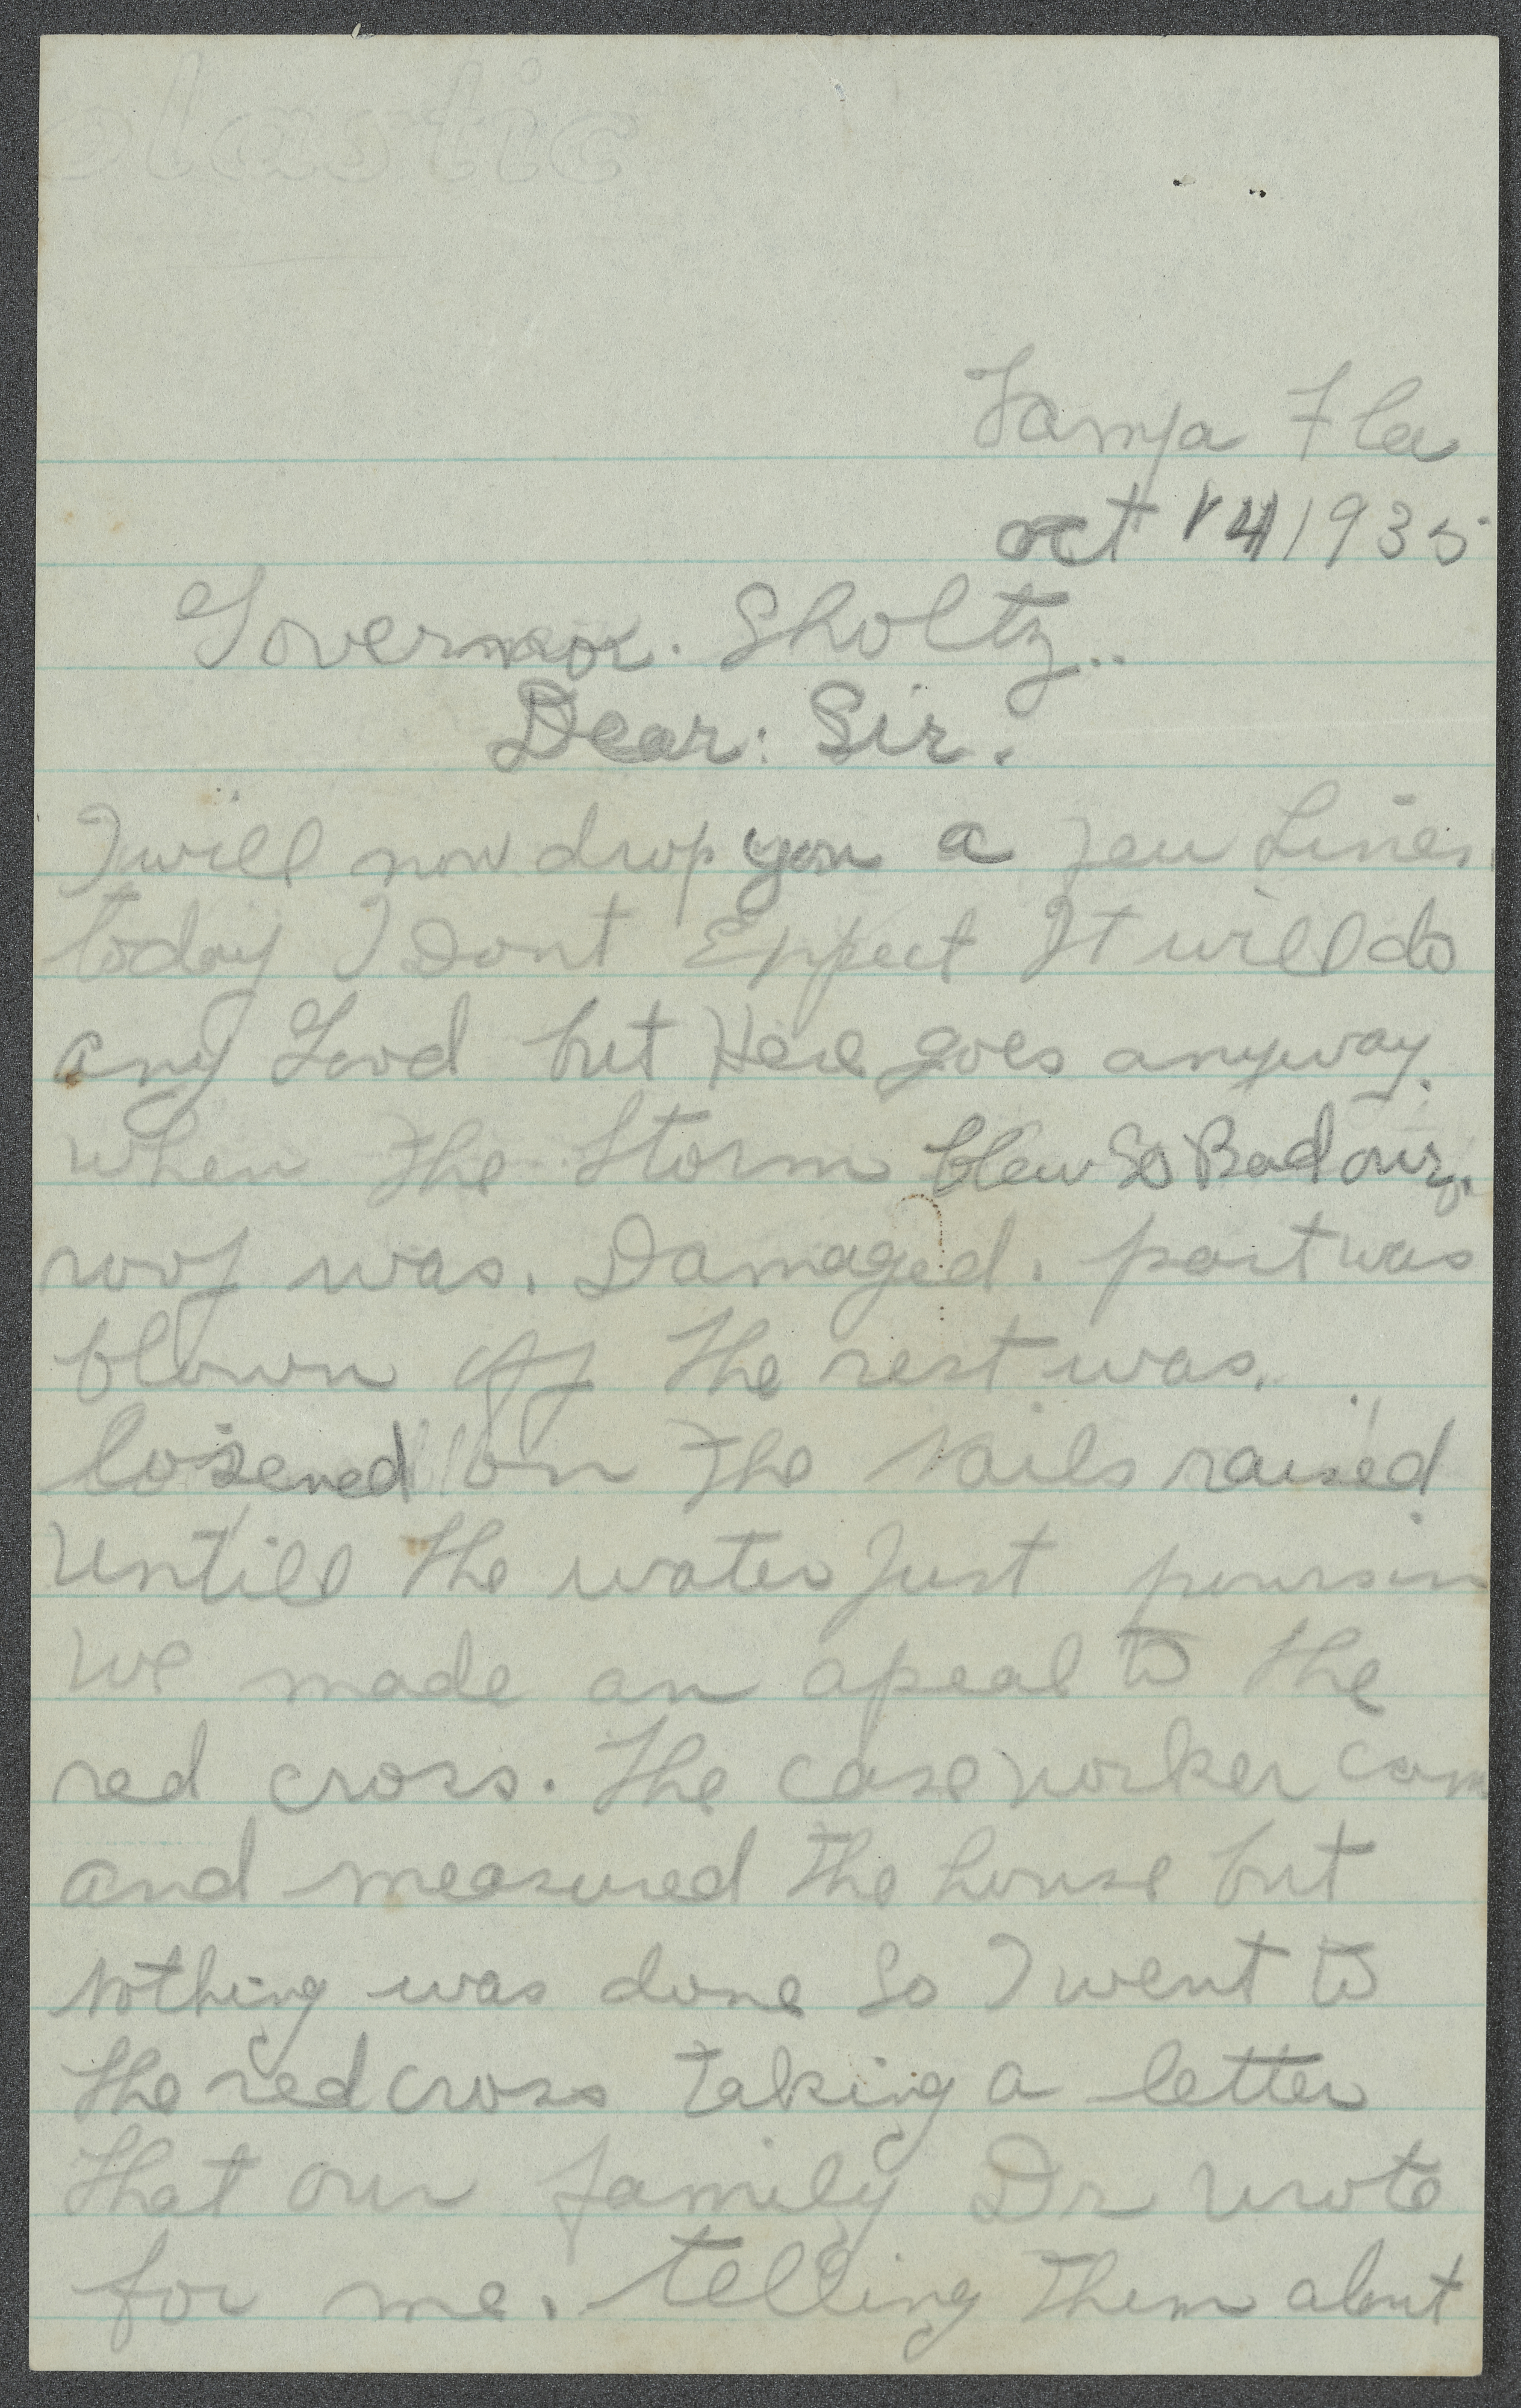 olastic
Tampa Fla
oct 14 1935
Governor. Sholtz..
Dear: Sir.
I will now drop you a few Lines
today I Dont Expect It will do
any Good but Here goes anyway.
when the Storm blew So Bad our.
roof was. Damaged. part was
blown off the rest was.
losened on the Nails raised
untill the water Just pours in
we made an apeal to the
red cross. The case worker cam
and measured the house but
Nothing was done So I went to
the red cross taking a letter
that our family Dr wrote
for me. telling them about